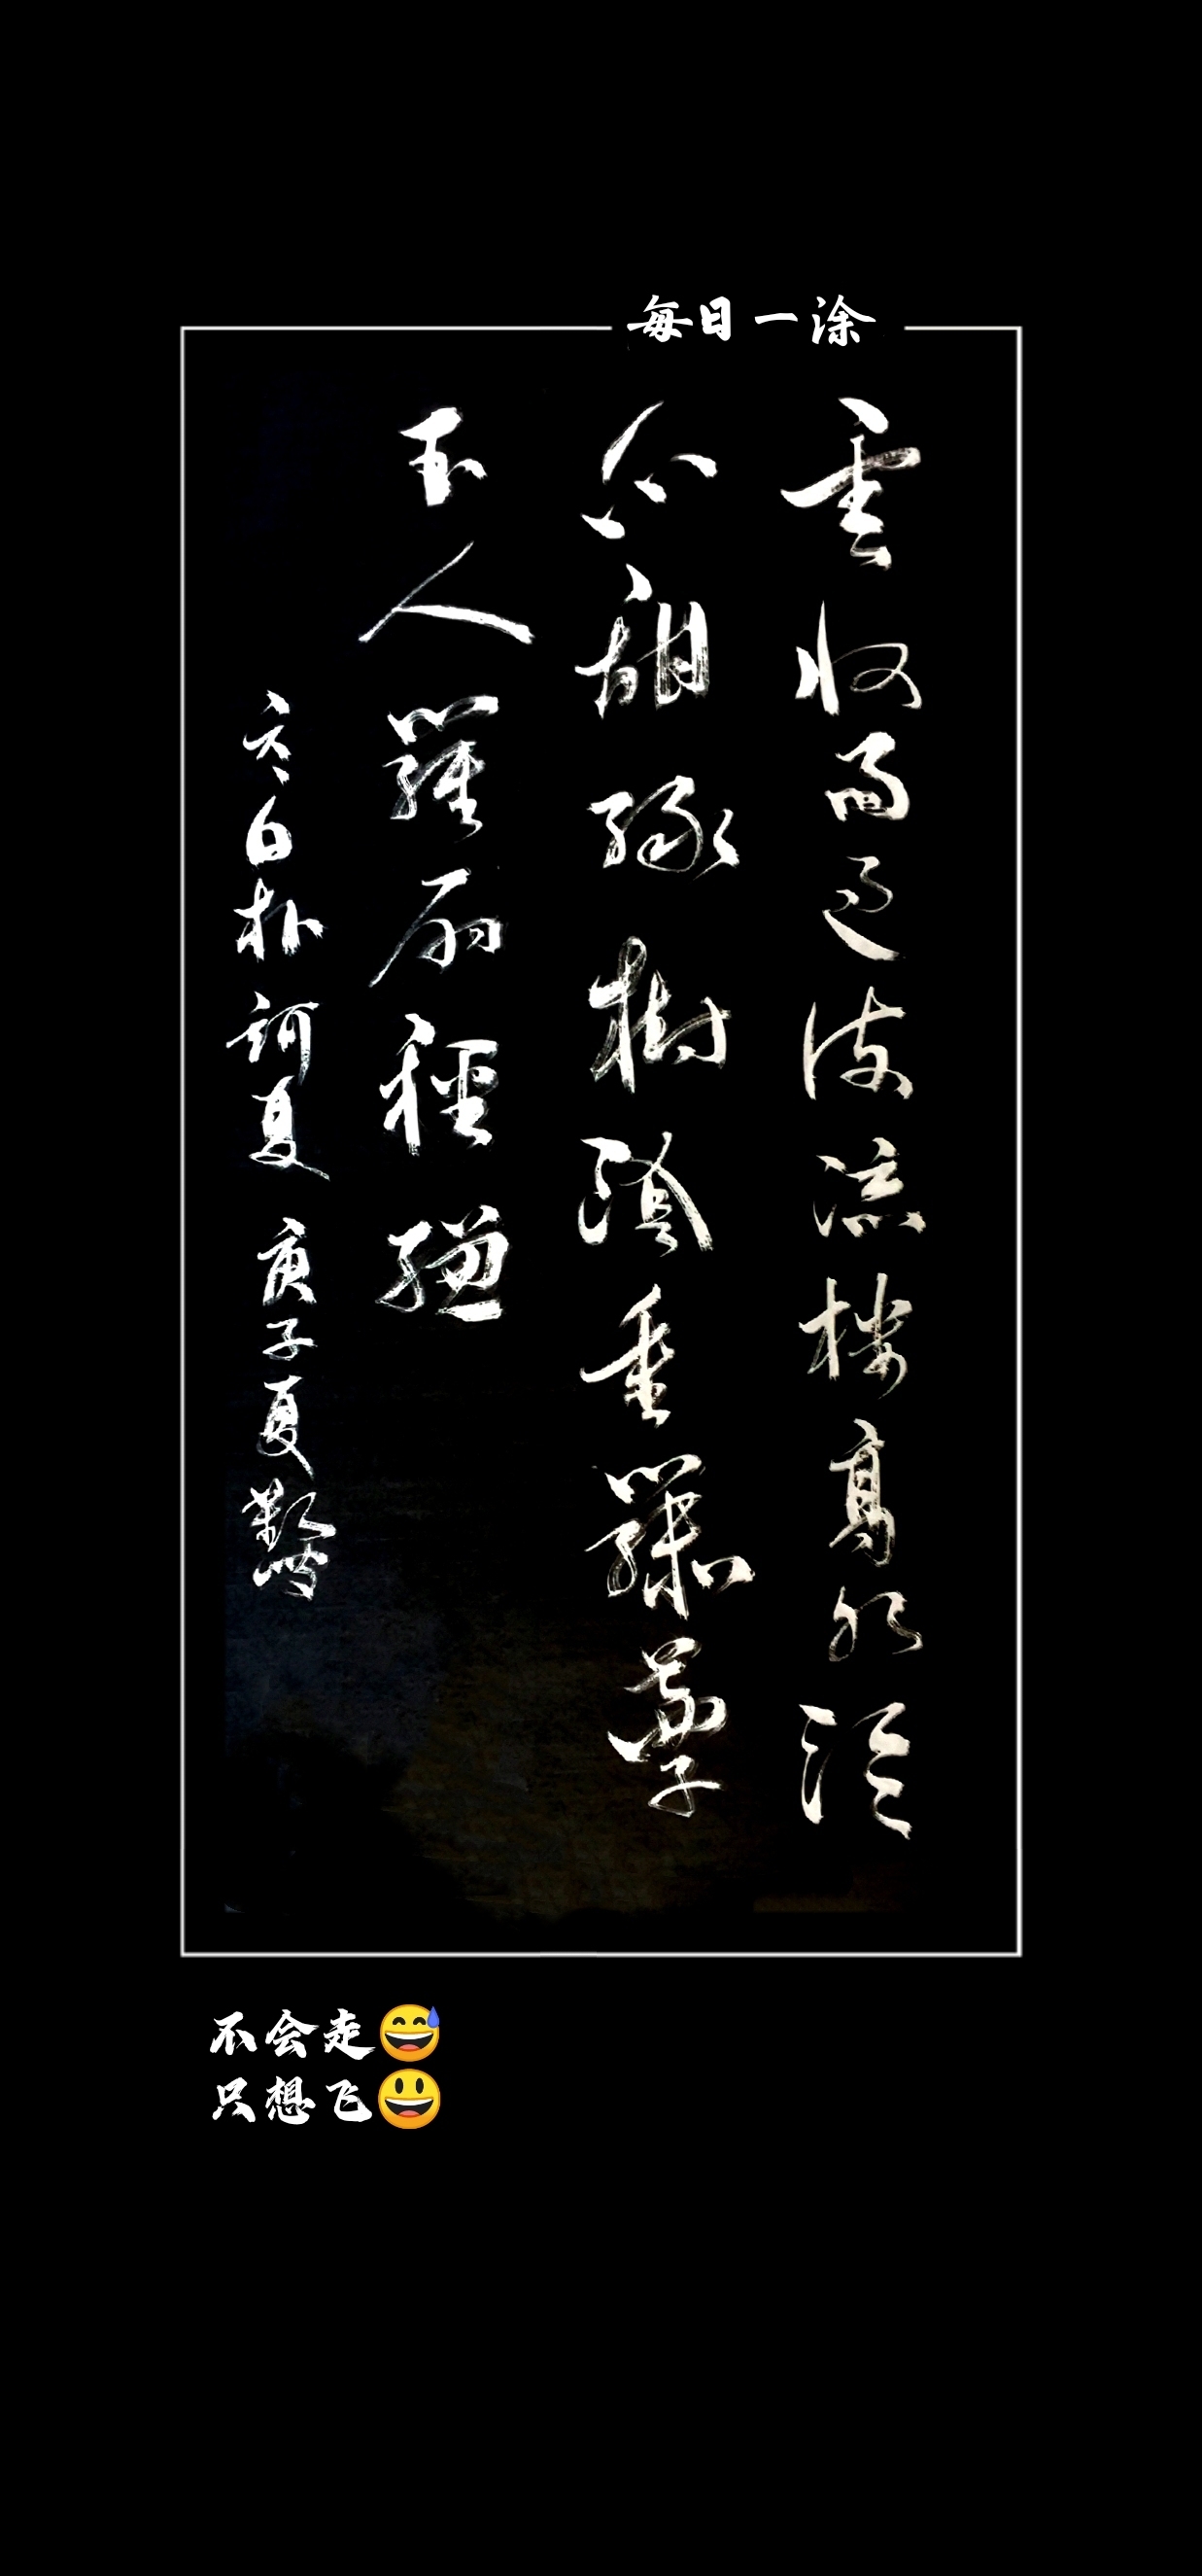 每日一涂
雲收雨过波添楼高水冷
瓜甜綠樹陰垂
玉人羅扇輕縑
元白朴詞夏 庚子夏
不会走😅
只想飞😃